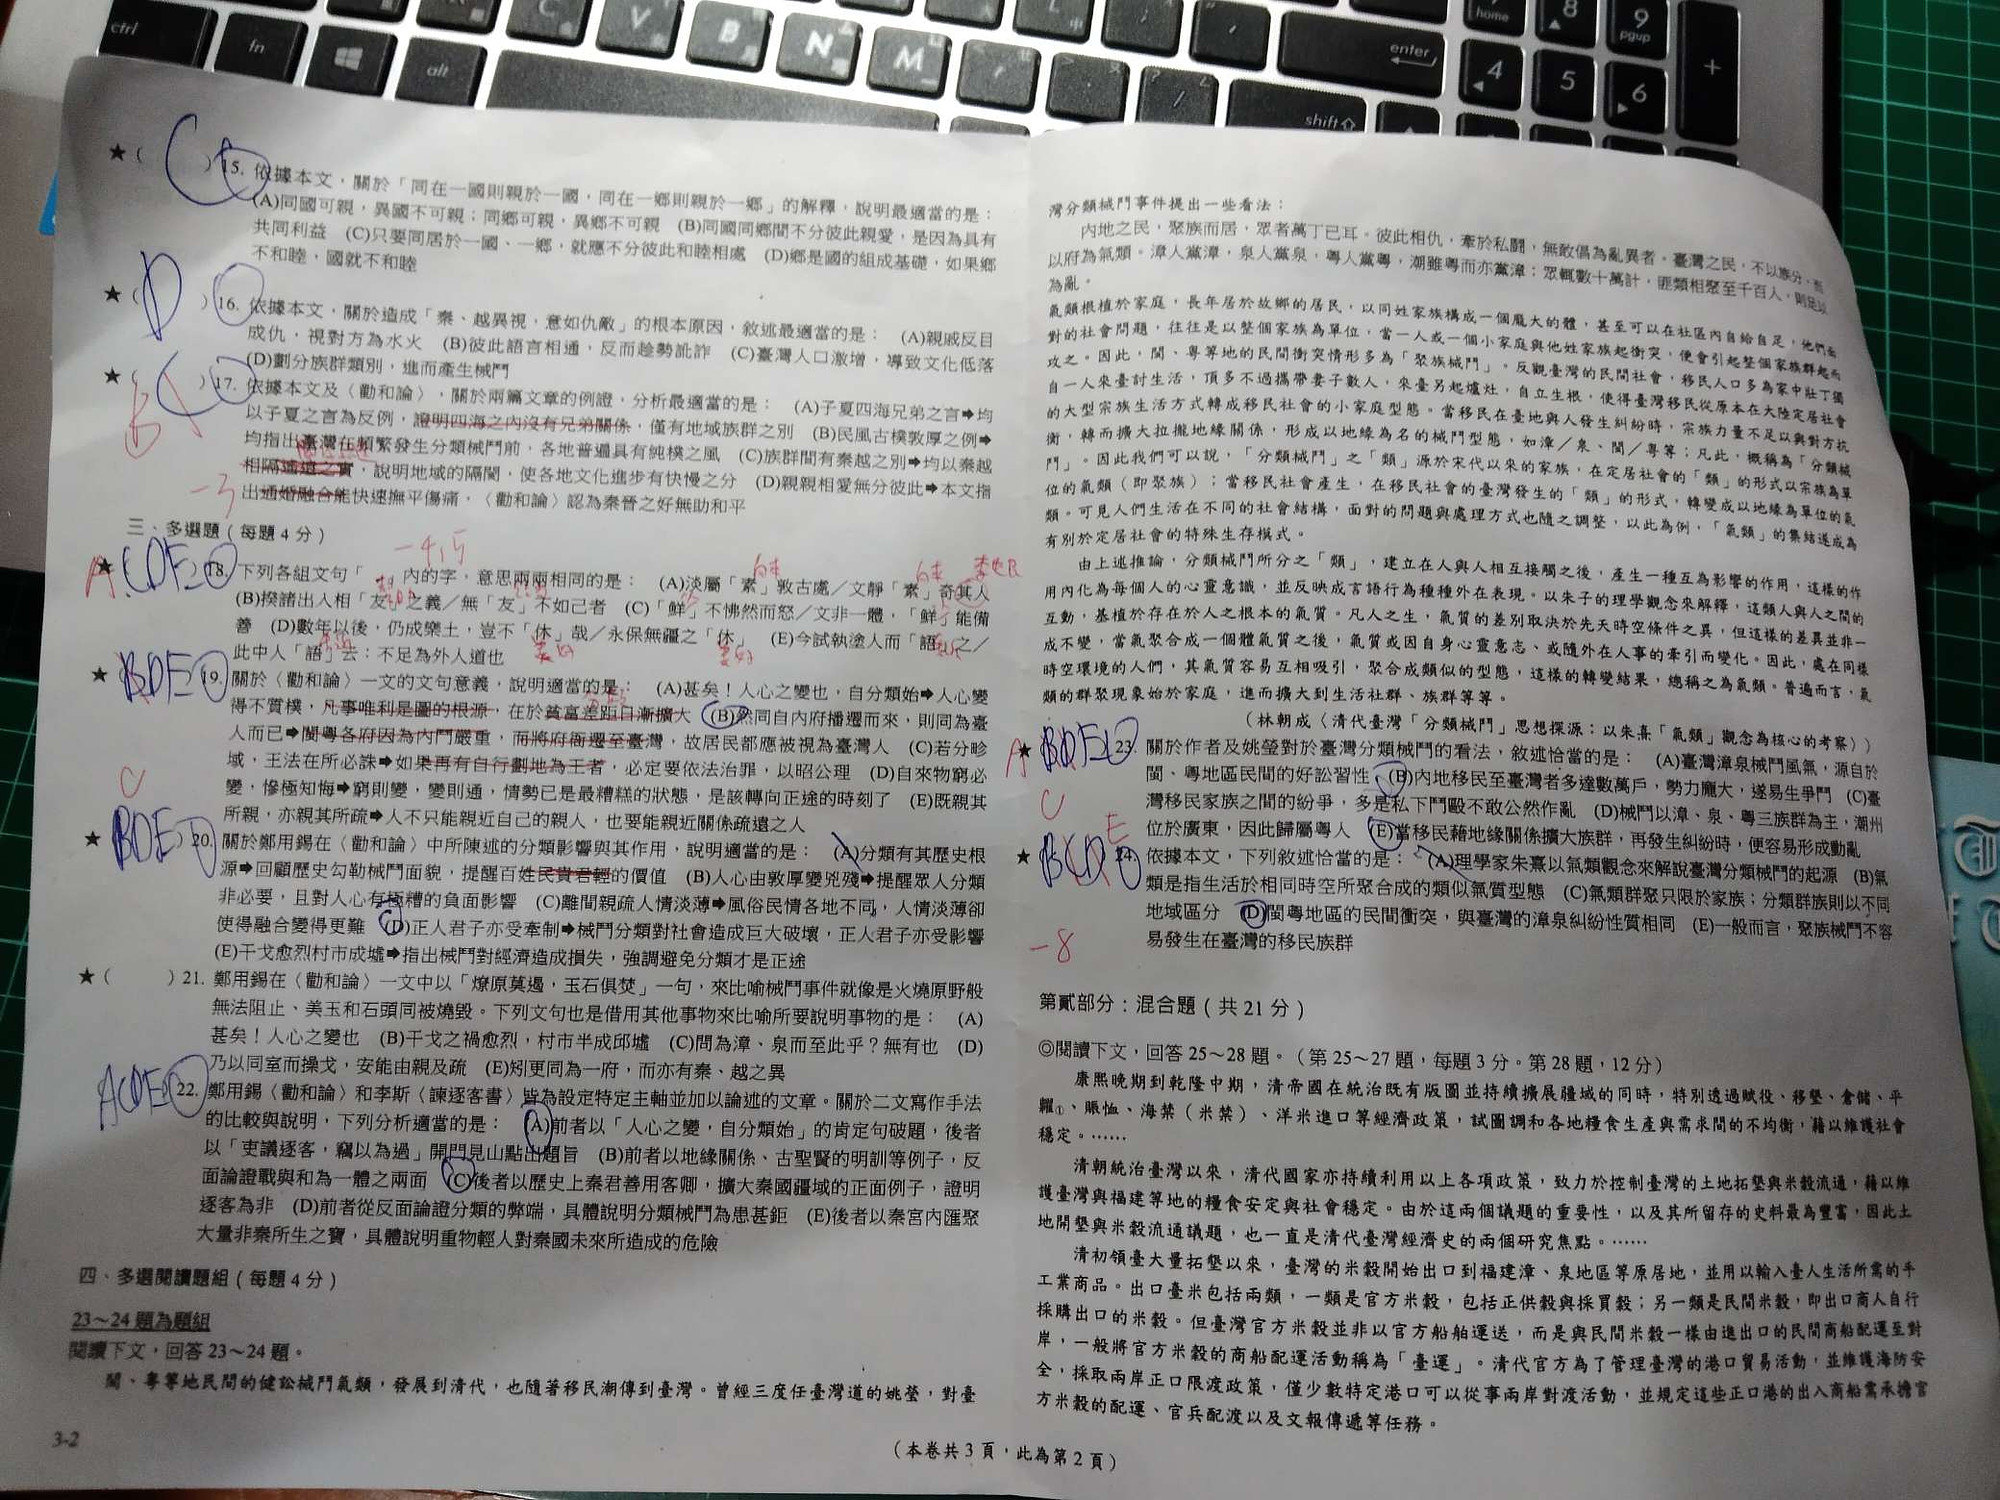 ★( C )15. 依據本文，關於「同在一國則親於一國，同在一鄉則親於一鄉」的解釋，說明最適當的是：
(A)同國可親，異國不可親；同鄉可親，異鄉不可親　(B)同國同鄉間不分彼此親愛，是因為具有
共同利益　(C)只要同居於一國、一鄉，就應不分彼此和睦相處　(D)鄉是國的組成基礎，如果鄉
不和睦，國就不和睦
★( D )16. 依據本文，關於造成「秦、越異視，意如仇敵」的根本原因，敘述最適當的是：　(A)親戚反目
成仇，視對方為水火　(B)彼此語言相通，反而趁勢訛詐　(C)臺灣人口激增，導致文化低落
(D)劃分族群類別，進而產生械鬥
★( )17. 依據本文及〈勸和論〉，關於兩篇文章的例證，分析最適當的是：　(A)子夏四海兄弟之言➡均
B
以子夏之言為反例，證明四海之內沒有兄弟關係，僅有地域族群之別　(B)民風古樸敦厚之例➡
均指出臺灣在頻繁發生分類械鬥前，各地普遍具有純樸之風　(C)族群間有秦越之別➡均以秦越
相隔遙遠之實，說明地域的隔閡，使各地文化進步有快慢之分　(D)親親相愛無分彼此➡本文指
-3
出通婚融合能快速撫平傷痛，〈勸和論〉認為秦晉之好無助和平
三、多選題（每題 4 分）
★ A CDE 18. 下列各組文句「　」內的字，意思兩兩相同的是：　(A)淡屬「素」敦古處／文靜「素」奇其人
(B)揆諸出入相「友」之義／無「友」不如己者　(C)「鮮」不怫然而怒／文非一體，「鮮」能備
善　(D)數年以後，仍成樂土，豈不「休」哉／永保無疆之「休」　(E)今試執塗人而「語」之／
此中人「語」去：不足為外人道也
★ BDE 19. 關於〈勸和論〉一文的文句意義，說明適當的是：　(A)甚矣！人心之變也，自分類始➡人心變
得不質樸，凡事唯利是圖的根源，在於貧富差距日漸擴大　(B)然同自內府播遷而來，則同為臺
人而已➡閩粵各府因為內鬥嚴重，而將府衙遷至臺灣，故居民都應被視為臺灣人　(C)若分畛
域，王法在所必誅➡如果再有自行劃地為王者，必定要依法治罪，以昭公理　(D)自來物窮必
變，慘極知悔➡窮則變，變則通，情勢已是最糟糕的狀態，是該轉向正途的時刻了　(E)既親其
所親，亦親其所疏➡人不只能親近自己的親人，也要能親近關係疏遠之人
C
★ BDE 20. 關於鄭用錫在〈勸和論〉中所陳述的分類影響與其作用，說明適當的是：　(A)分類有其歷史根
源➡回顧歷史勾勒械鬥面貌，提醒百姓民貴君輕的價值　(B)人心由敦厚變兇殘➡提醒眾人分類
非必要，且對人心有極糟的負面影響　(C)離間親疏人情淡薄➡風俗民情各地不同，人情淡薄卻
使得融合變得更難　(D)正人君子亦受牽制➡械鬥分類對社會造成巨大破壞，正人君子亦受影響
(E)干戈愈烈村市成墟➡指出械鬥對經濟造成損失，強調避免分類才是正途
★(　　)21. 鄭用錫在〈勸和論〉一文中以「燎原莫遏，玉石俱焚」一句，來比喻械鬥事件就像是火燒原野般
無法阻止、美玉和石頭同被燒毀。下列文句也是借用其他事物來比喻所要說明事物的是：　(A)
甚矣！人心之變也　(B)干戈之禍愈烈，村市半成邱墟　(C)問為漳、泉而至此乎？無有也　(D)
乃以同室而操戈，安能由親及疏　(E)矧更同為一府，而亦有秦、越之異
ACDE 22. 鄭用錫〈勸和論〉和李斯〈諫逐客書〉皆為設定特定主軸並加以論述的文章。關於二文寫作手法
的比較與說明，下列分析適當的是：　(A)前者以「人心之變，自分類始」的肯定句破題，後者
以「吏議逐客，竊以為過」開門見山點出題旨　(B)前者以地緣關係、古聖賢的明訓等例子，反
面論證戰與和為一體之兩面　(C)後者以歷史上秦君善用客卿，擴大秦國疆域的正面例子，證明
逐客為非　(D)前者從反面論證分類的弊端，具體說明分類械鬥為患甚鉅　(E)後者以秦宮內匯聚
大量非秦所生之寶，具體說明重物輕人對秦國未來所造成的危險
四、多選閱讀題組（每題 4 分）
23～24 題為題組
閱讀下文，回答 23～24 題。
閩、粵等地民間的健訟械鬥氣類，發展到清代，也隨著移民潮傳到臺灣。曾經三度任臺灣道的姚瑩，對臺
3-2
灣分類械鬥事件提出一些看法：
內地之民，聚族而居，眾者萬丁已耳。彼此相仇，牽於私鬪，無敢倡為亂異者。臺灣之民，不以族分，而
以府為氣類。漳人黨漳，泉人黨泉，粵人黨粵，潮雖粵而亦黨漳；眾輒數十萬計，匪類相聚至千百人，則足以
為亂。
氣類根植於家庭，長年居於故鄉的居民，以同姓家族構成一個龐大的體，甚至可以在社區內自給自足，他們面
對的社會問題，往往是以整個家族為單位，當一人或一個小家庭與他姓家族起衝突，便會引起整個家族群起而
攻之。因此，閩、粵等地的民間衝突情形多為「聚族械鬥」。反觀臺灣的民間社會，移民人口多為家中壯丁獨
自一人來臺討生活，頂多不過攜帶妻子數人，來臺另起爐灶，自立生根，使得臺灣移民從原本在大陸定居社會
的大型宗族生活方式轉成移民社會的小家庭型態。當移民在臺地與人發生糾紛時，宗族力量不足以與對方抗
衡，轉而擴大拉攏地緣關係，形成以地緣為名的械鬥型態，如漳／泉、閩／粵等；凡此，概稱為「分類械
鬥」。因此我們可以說，「分類械鬥」之「類」源於宋代以來的家族，在定居社會的「類」的形式以宗族為單
位的氣類（即聚族）；當移民社會產生，在移民社會的臺灣發生的「類」的形式，轉變成以地緣為單位的氣
類。可見人們生活在不同的社會結構，面對的問題與處理方式也隨之調整，以此為例，「氣類」的集結遂成為
有別於定居社會的特殊生存模式。
由上述推論，分類械鬥所分之「類」，建立在人與人相互接觸之後，產生一種互為影響的作用，這樣的作
用內化為每個人的心靈意識，並反映成言語行為種種外在表現。以朱子的理學觀念來解釋，這類人與人之間的
互動，基植於存在於人之根本的氣質。凡人之生，氣質的差別取決於先天時空條件之異，但這樣的差異並非一
成不變，當氣聚合成一個體氣質之後，氣質或因自身心靈意志、或隨外在人事的牽引而變化。因此，處在同樣
時空環境的人們，其氣質容易互相吸引，聚合成類似的型態，這樣的轉變結果，總稱之為氣類。普遍而言，氣
類的群聚現象始於家庭，進而擴大到生活社群、族群等等。
（林朝成〈清代臺灣「分類械鬥」思想探源：以朱熹「氣類」觀念為核心的考察〉）
★ BDE 23. 關於作者及姚瑩對於臺灣分類械鬥的看法，敘述恰當的是：　(A)臺灣漳泉械鬥風氣，源自於
閩、粵地區民間的好訟習性　(B)內地移民至臺灣者多達數萬戶，勢力龐大，遂易生爭鬥　(C)臺
灣移民家族之間的紛爭，多是私下鬥毆不敢公然作亂　(D)械鬥以漳、泉、粵三族群為主，潮州
位於廣東，因此歸屬粵人　(E)當移民藉地緣關係擴大族群，再發生糾紛時，便容易形成動亂
C
E
★ BCD 24. 依據本文，下列敘述恰當的是：　(A)理學家朱熹以氣類觀念來解說臺灣分類械鬥的起源　(B)氣
類是指生活於相同時空所聚合成的類似氣質型態　(C)氣類群聚只限於家族；分類群族則以不同
地域區分　(D)閩粵地區的民間衝突，與臺灣的漳泉糾紛性質相同　(E)一般而言，聚族械鬥不容
易發生在臺灣的移民族群
-8
第貳部分：混合題（共 21 分）
◎閱讀下文，回答 25～28 題。（第 25～27 題，每題 3 分。第 28 題，12 分）
康熙晚期到乾隆中期，清帝國在統治既有版圖並持續擴展疆域的同時，特別透過賦役、移墾、倉儲、平
糶①、賑恤、海禁（米禁）、洋米進口等經濟政策，試圖調和各地糧食生產與需求間的不均衡，藉以維護社會
穩定。……
清朝統治臺灣以來，清代國家亦持續利用以上各項政策，致力於控制臺灣的土地拓墾與米穀流通，藉以維
護臺灣與福建等地的糧食安定與社會穩定。由於這兩個議題的重要性，以及其所留存的史料最為豐富，因此土
地開墾與米穀流通議題，也一直是清代臺灣經濟史的兩個研究焦點。……
清初領臺大量拓墾以來，臺灣的米穀開始出口到福建漳、泉地區等原居地，並用以輸入臺人生活所需的手
工業商品。出口臺米包括兩類，一類是官方米穀，包括正供穀與採買穀；另一類是民間米穀，即出口商人自行
採購出口的米穀。但臺灣官方米穀並非以官方船舶運送，而是與民間米穀一樣由進出口的民間商船配運至對
岸，一般將官方米穀的商船配運活動稱為「臺運」。清代官方為了管理臺灣的港口貿易活動，並維護海防安
全，採取兩岸正口限渡政策，僅少數特定港口可以從事兩岸對渡活動，並規定這些正口港的出入商船需承擔官
方米穀的配運、官兵配渡以及文報傳遞等任務。
（本卷共 3 頁，此為第 2 頁）
ctrl
fn
alt
C
V
B
N
M
L
enter
shift
home
8
9
pgup
4
5
6
+